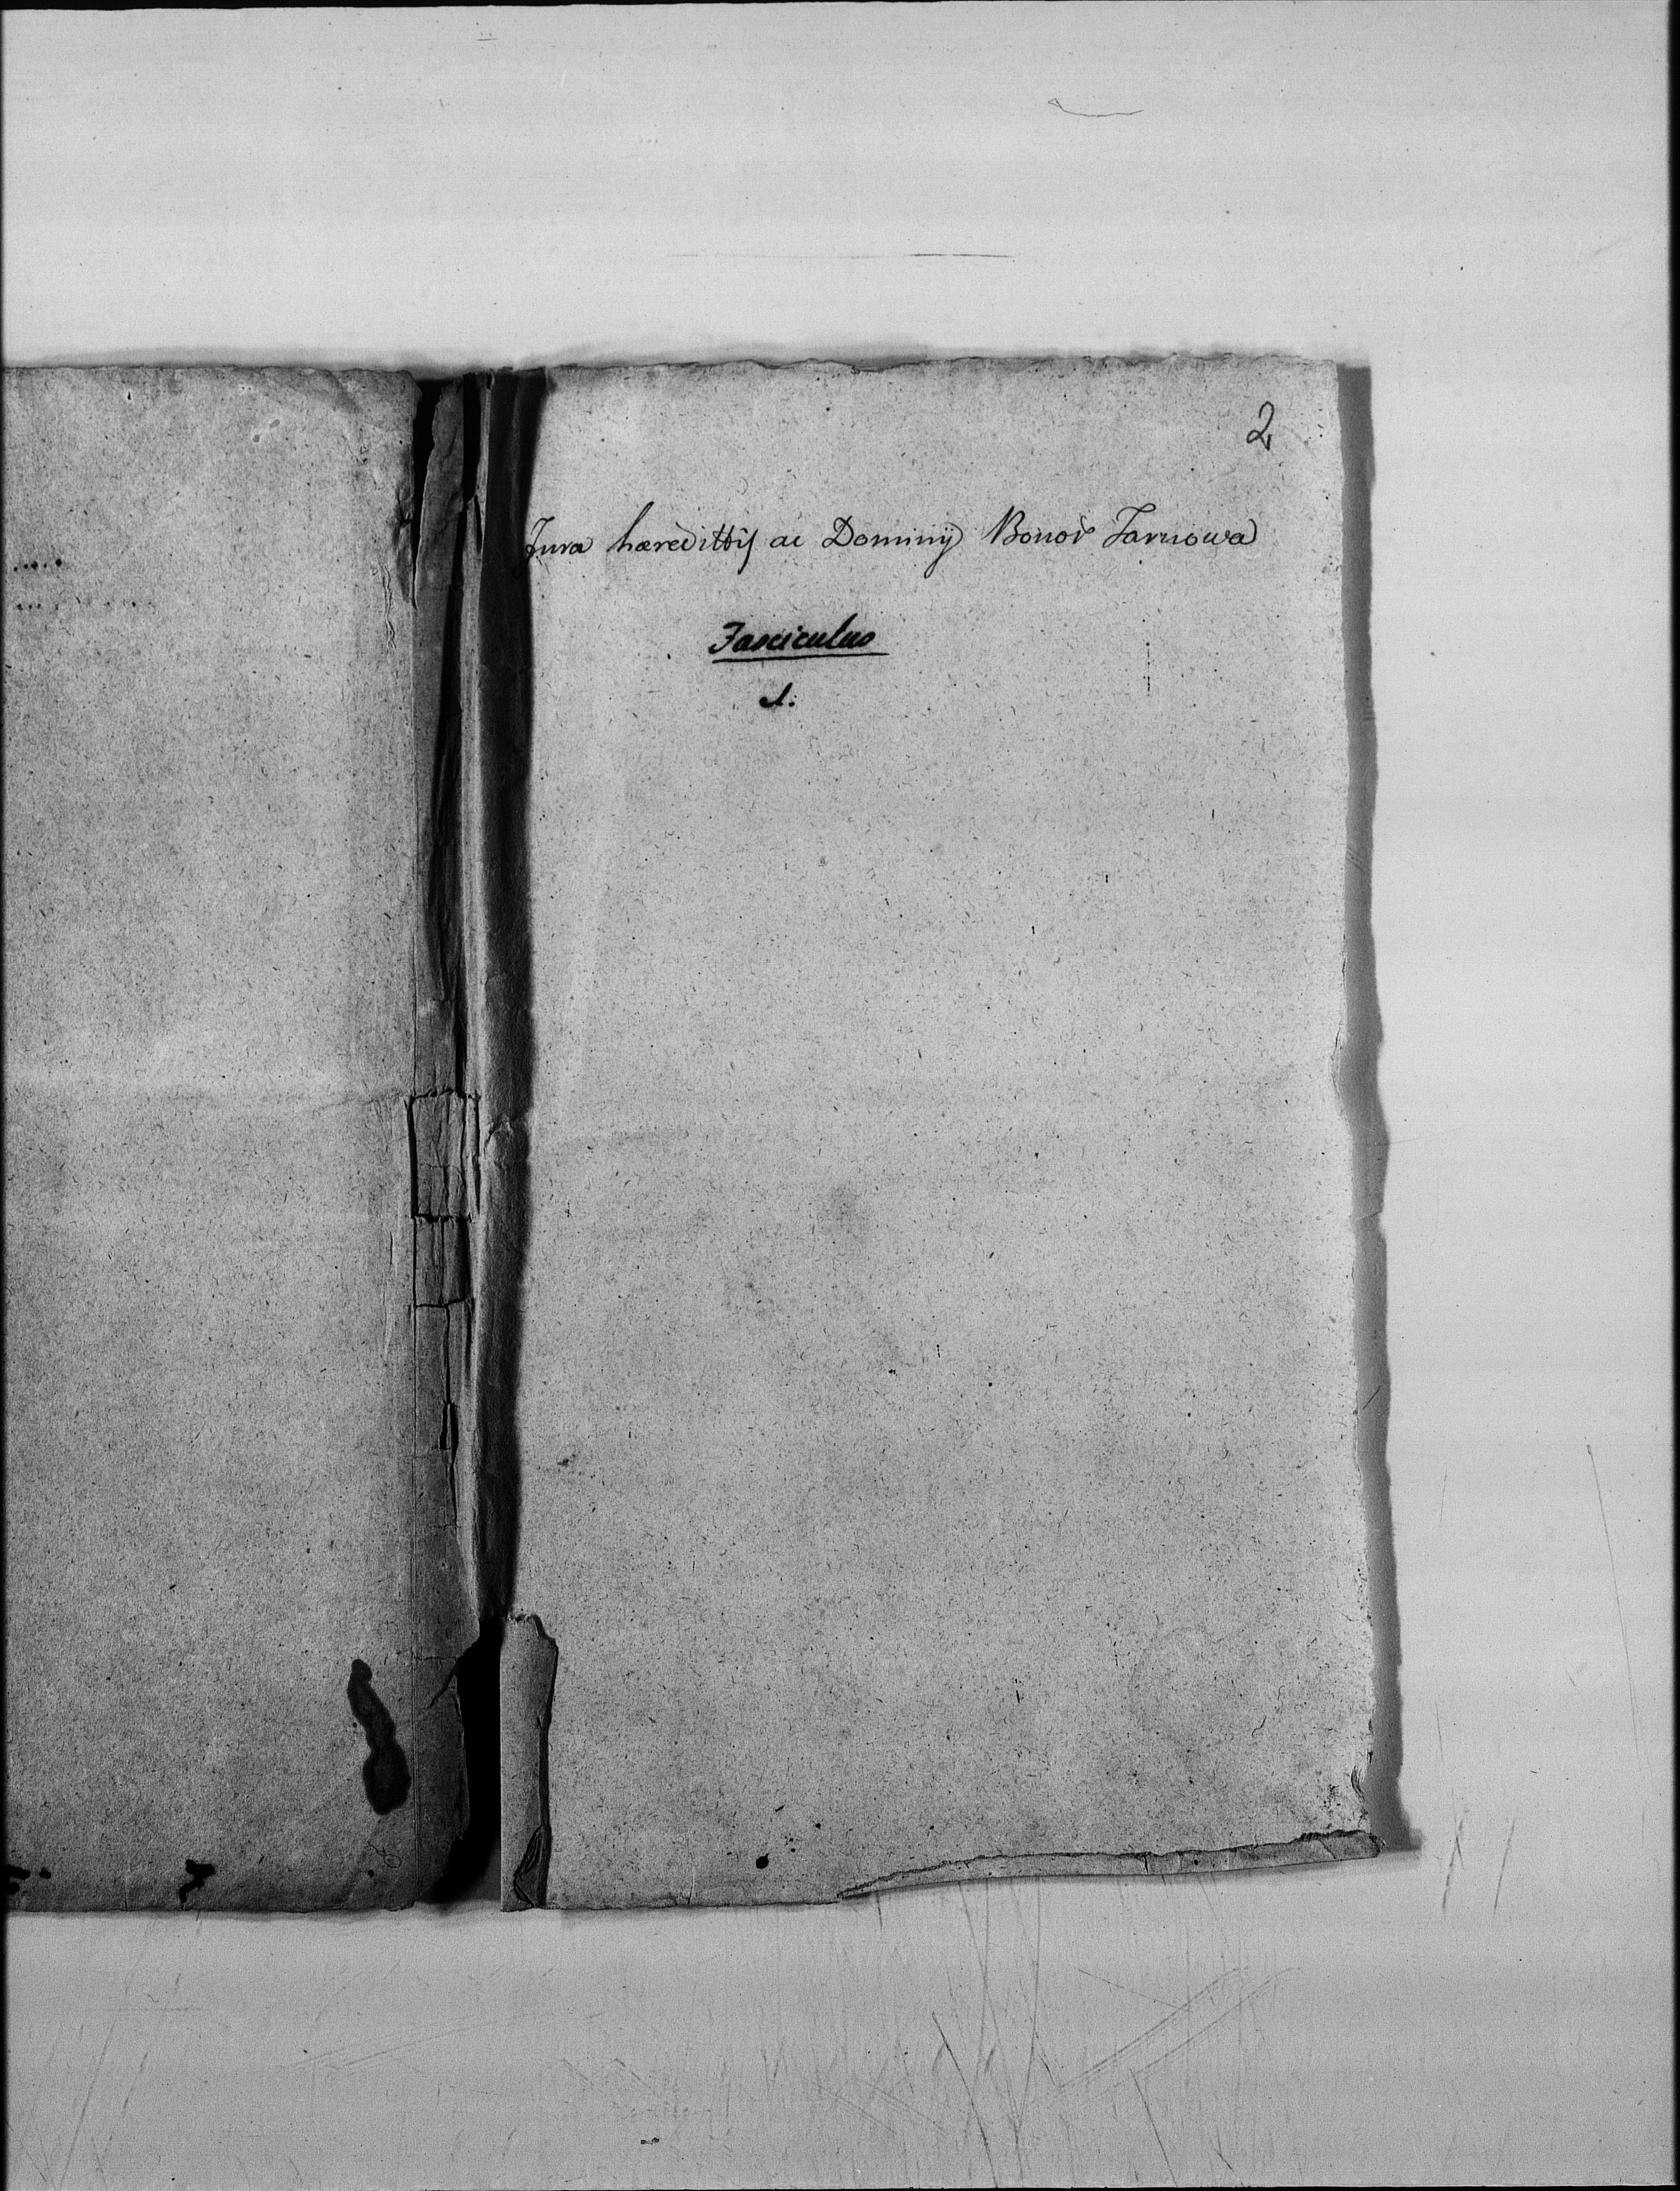 2
Jura hæredittis ac Dominij Bonor Tarnowa
Fasciculus
1.